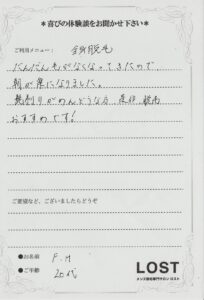 ＊喜びの体験談をお聞かせ下さい＊
ご利用メニュー： 全身脱毛
だんだん毛がなくなってきたので
朝が楽になりました。
髭剃りがめんどうな方 是非 脱毛
おすすめです!
ご要望など、ございましたらどうぞ
●お名前 F.M
●ご年齢 20代
LOST
メンズ脱毛専門サロン ロスト